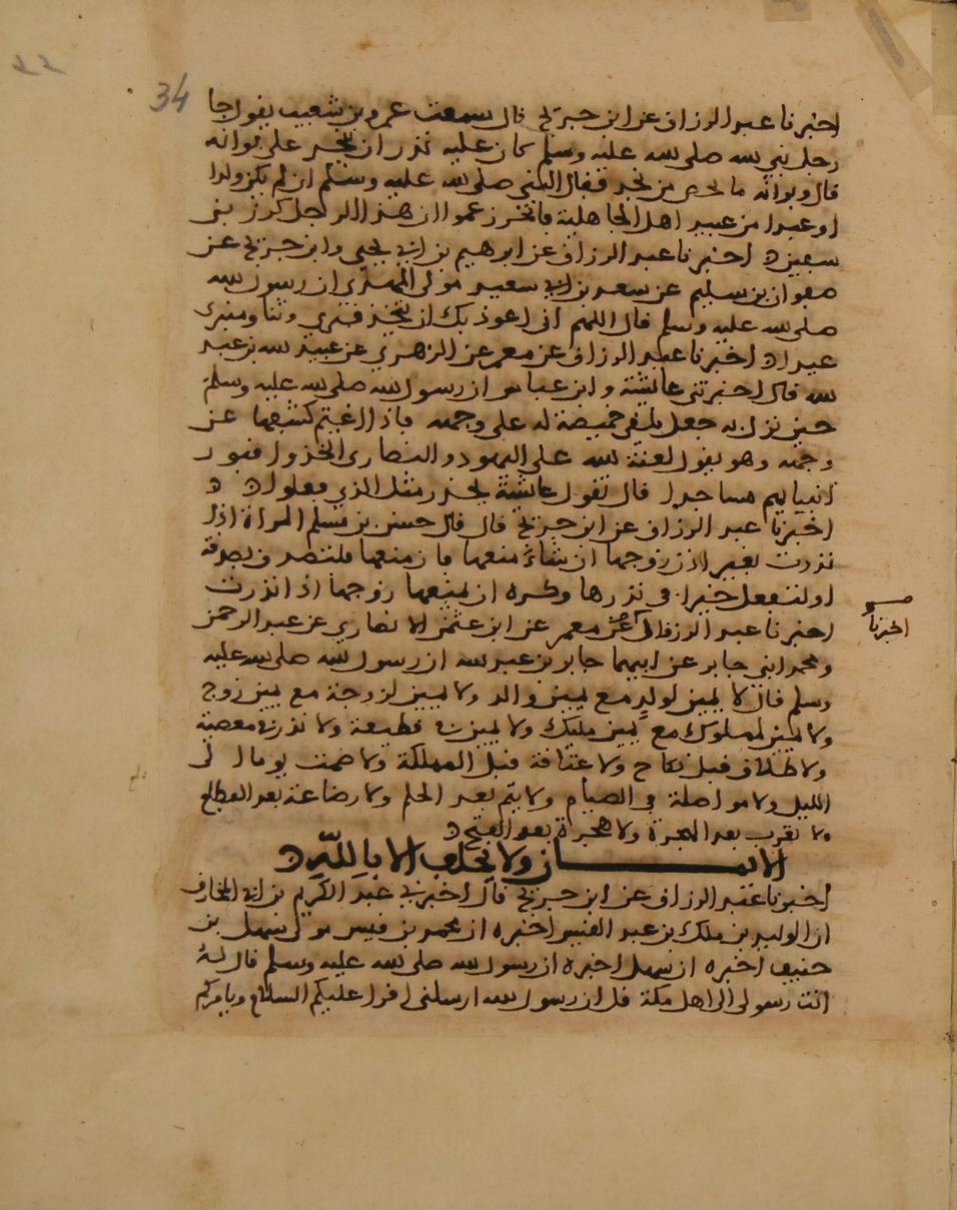 34
اخبرنا عبد الرزاق عن ابن جريج قال سمعت عمرو بن شعيب يقول جا
رجل نبي الله صلى الله عليه وسلم كان عليه نذر ان ينحر على بوانه
قال وبوانه ما من نجد فقال النبي صلى الله عليه وسلم ان لم يكن ولدا
او عيدا من عيد اهل الجاهلية فانحر زعموا ان هذا الرجل كردز بن
سفين اخبرنا عبد الرزاق عن ابرهيم بن ابي يحيى وابن جريج عن
صفوان بن سليم عن سعد بن ابي سعيد مولى المهري ان رسول الله
صلى الله عليه وسلم قال اللهم اني اعوذ بك ان يتخذ قبري وثنا ومنبري
عيدا اخبرنا عبد الرزاق عن معمر عن الزهري عن عبيد الله بن عبد
الله قال اخبرتني عائشة وابن عباس ان رسول الله صلى الله عليه وسلم
حين نزل به جعل يلقي خميصة له على وجهه فاذا اغتم كشفها عن
وجهه وهو يقول لعنة الله على اليهود والنصارى اتخذوا قبور
انبيايهم مساجدا قال تقول عائشة يحذر مثل الذي فعلوا
اخبرنا عبد الرزاق عن ابن جريج قال قال حسن بن مسلم المراة اذا
نذرت بغير اذن زوجها ان شاء منعها فان منعها فلتصم وبصدقة
او لتفعل خيرا في نذرها وكره ان يمنعها زوجها اذا نذرت
اخبرنا عبد الرزاق عن معمر عن ابن عثمن الانصاري عن عبد الرحمن
اخبرنا
ومحمد ابني جابر عن ابيهما جابر بن عبد الله ان رسول الله صلى الله عليه
وسلم قال لا يمين لولد مع يمين والد ولا يمين لزوجة مع يمين زوج
ولا يمين لمملوك مع يمين مليك ولا يمين في قطيعة ولا نذر في معصية
ولا طلاق قبل نكاح ولا عتاقة قبل المملكة ولا صمت يوما الى
الليل ولا مواصلة في الصيام ولا يتم بعد الحلم ولا رضاعة بعد الفطام
ولا تعرب بعد الهجرة ولا هجرة بعد الفتح
الايمان ولا يحلف الا بالله
اخبرنا عبد الرزاق عن ابن جريج قال اخبرني عبد الكريم بن ابي المخارق
ان الوليد بن ملك بن عبد القيس اخبره ان محمد بن قيس مولى سهل بن
حنيف اخبره ان سهل اخبره ان رسول الله صلى الله عليه وسلم قال له
انت رسولي الى اهل مكة قل ان رسول الله ارسلني اقرا عليكم السلام ويامركم